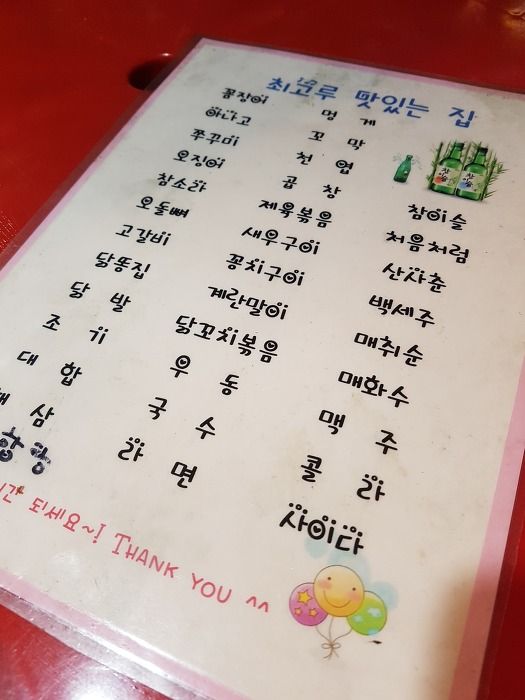 최고루 맛있는 집
꼼장어 멍게
아나고 꼬막
쭈꾸미 천엽
오징어 곱창 참이슬
참소라 제육볶음 처음처럼
오돌뼈 새우구이 산사춘
고갈비 꽁치구이 백세주
닭똥집 계란말이 매취순
닭발 닭꼬치볶음 매화수
조기 우동 맥주
대합 국수 콜라
해삼 라면 사이다
되세요~! THANK YOU ^^